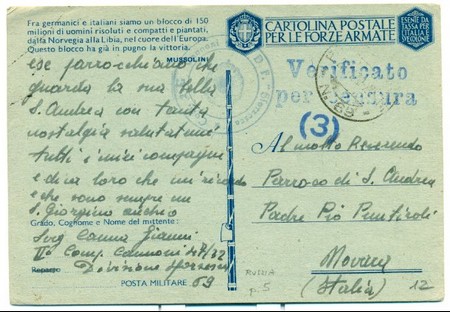 Fra germanici e italiani siamo un blocco di 150
milioni di uomini risoluti e compatti e piantati,
dalla Norvegia alla Libia, nel cuore dell'Europa.
Questo blocco ha già in pugno la vittoria.
MUSSOLINI
CARTOLINA POSTALE
PER LE FORZE ARMATE
ESENTE DA
TASSA PER
L'ITALIA E
COLONIE
Verificato
per censura
(3)
guarda la sua bella
S. Andrea con tanta
nostalgia
tutti i miei compagni
e dica loro che mi ricordo
e che sono sempre un
S. Giorgino
Grado, Cognome e Nome del mittente:
Serg Canna Gianni
IIª Comp. Cannoni 47/32
Reparto Divisione Sforzesca
POSTA MILITARE 69
Al molto Reverendo
Parroco di S. Andrea
Padre Pio
Novara
(Italia)
RUSSIA
p. 5
12